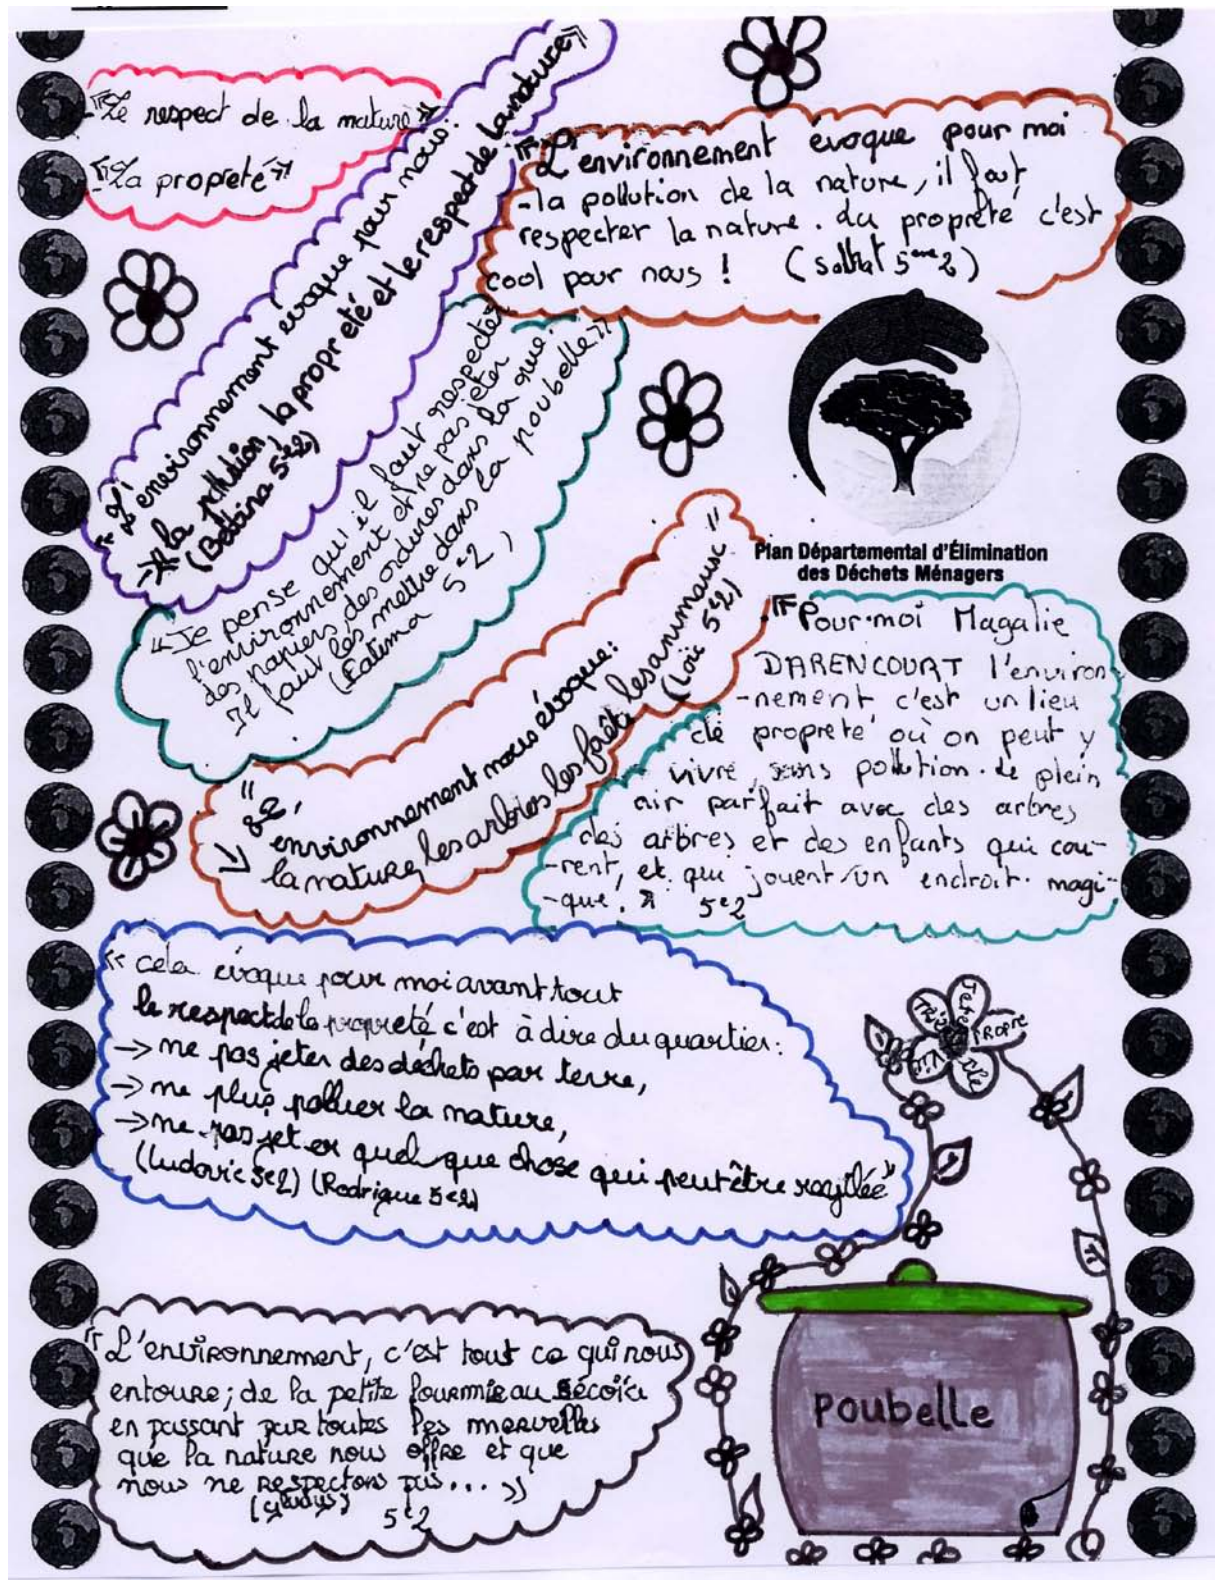 "Le respect de la nature"
"La propreté"
"L'environnement évoque pour nous:
→ la pollution, la propreté et le respect de la nature"
(Bettina 5e2)
"L'environnement évoque pour moi
-la pollution de la nature, il faut
respecter la nature. du propreté c'est
cool pour nous ! ( 5eme2)
"Je pense qu'il faut respecter
l'environnement et ne pas jeter
des papiers, des ordures dans la rue.
Il faut les mettre dans la poubelle"
(Fatima 5e2)
Plan Départemental d'Élimination
des Déchets Ménagers
"L'
environnement nous évoque:
→ la nature, les arbres les forêts les animaux"
(Loïc 5e2)
"Pour moi Magalie
DARENCOURT l'environ-
-nement c'est un lieu
de propreté où on peut y
vivre, sans pollution. Le plein
air parfait avec des arbres
des arbres et des enfants qui cou-
-rent, et qui jouent un endroit magi-
-que! " 5e2
"cela évoque pour moi avant tout
le respect de la propreté c'est à dire du quartier:
→ ne pas jeter des déchets par terre,
→ ne plus polluer la nature,
→ ne pas jeter quelque chose qui peut être recyclée"
(Ludovic 5e2) (Rodrigue 5e2)
Jete
PROPRE
"L'environnement, c'est tout ce qui nous
entoure; de la petite fourmie au sécoïa
en passant par toutes les merveilles
que la nature nous offre et que
nous ne respectons pas... »
(Gladys) 5e2
Poubelle